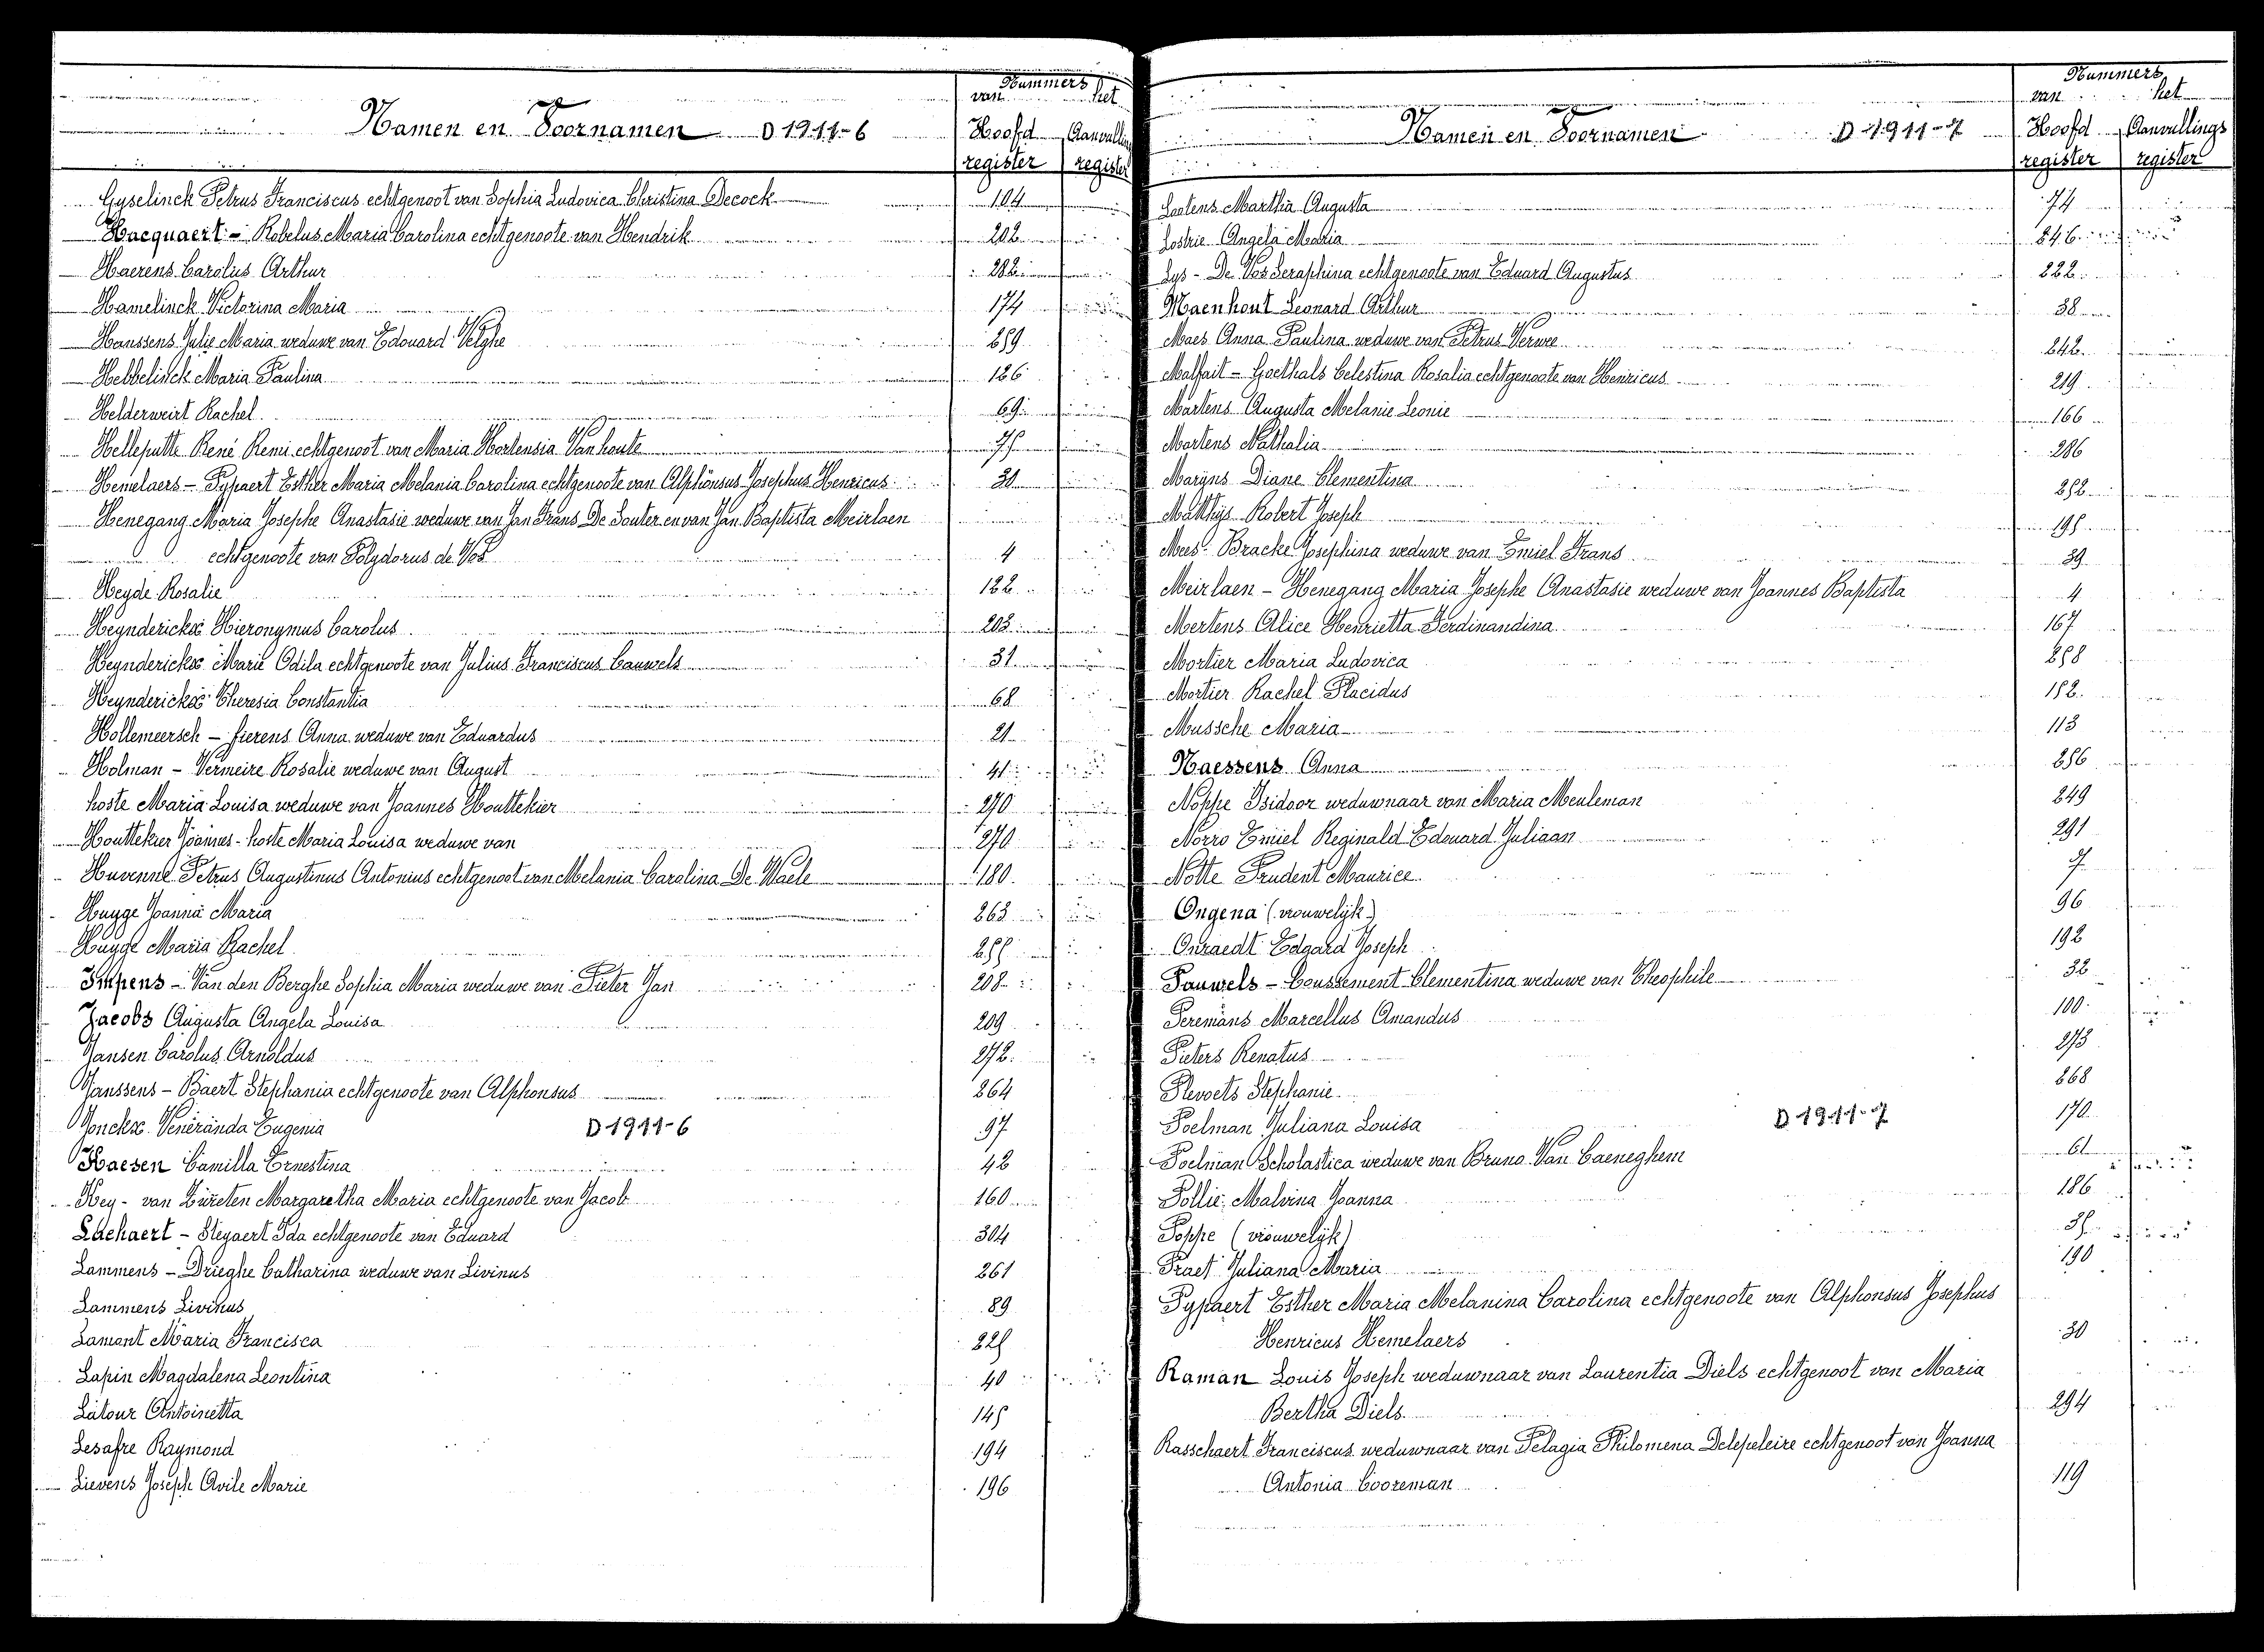 Nummers
van het
Namen en Voornamen D 1911-6 Hoofd Aanvullings
register register
Gyselinck Petrus Franciscus echtgenoot van Sophia Ludovica Christina Decock 104
Hacquaert - Robelus Maria Carolina echtgenoote van Hendrik 202
Haerens Carolus Arthur 282
Hamelinck Victorina Maria 174
Hanssens Julie Maria weduwe van Edouard Velghe 259
Hebbelinck Maria Paulina 126
Helderweirt Rachel 69
Helleputte René Remi echtgenoot van Maria Hortensia Van houte 75
Hemelaers - Pypaert Esther Maria Melania Carolina echtgenoote van Alphonsus Josephus Henricus 30
Henegang Maria Josephe Anastasie weduwe van Jan Frans De Souter en van Jan Baptista Meirlaen
echtgenoote van Polydorus de Vos 4
Heyde Rosalie 122
Heynderickx Hieronymus Carolus 203
Heynderickx Marie Odila echtgenoote van Julius Franciscus Cauwels 31
Heynderickx Theresia Constantia 68
Hollemeersch - fierens Anna weduwe van Eduardus 21
Holman - Vermeire Rosalie weduwe van August 41
hoste Maria Louisa weduwe van Joannes Houttekier 270
Houttekier Joannes - hoste Maria Louisa weduwe van 270
Huvenne Petrus Augustinus Antonius echtgenoot van Melania Carolina De Waele 180
Huyge Joanna Maria 263
Huyge Maria Rachel 255
Impens - Van den Berghe Sophia Maria weduwe van Pieter Jan 208
Jacobs Augusta Angela Louisa 209
Jansen Carolus Arnoldus 272
Janssens - Baert Stephania echtgenoote van Alphonsus 264
Jonckx Veneranda Eugenia D 1911-6 97
Kaesen Camilla Ernestina 42
Key - van Züreten Margaretha Maria echtgenoote van Jacob 160
Lachaert - Steyaert Ida echtgenoote van Eduard 304
Lammens - Drieghe Catharina weduwe van Livinus 261
Lammens Livinus 89
Lamont Maria Francisca 225
Lapin Magdalena Leontina 40
Latour Antoinetta 145
Lesafre Raymond 194
Lievens Joseph Avile Marie 196
Nummers
van het
Namen en Voornamen D 1911-7 Hoofd Aanvullings
register register
Lootens Martha Augusta 74
Lostrie Angela Maria 246
Lys - De Vos Seraphina echtgenoote van Eduard Augustus 222
Maenhout Leonard Arthur 38
Maes Anna Paulina weduwe van Petrus Verwee 242
Malfait - Goethals Celestina Rosalia echtgenoote van Henricus 219
Martens Augusta Melanie Leonie 166
Martens Nathalia 286
Maryns Diane Clementina 252
Matthys Robert Joseph 195
Mees - Bracke Josephina weduwe van Emiel Frans 39
Meirlaen - Henegang Maria Josephe Anastasie weduwe van Joannes Baptista 4
Mertens Alice Henrietta Ferdinandina 167
Mortier Maria Ludovica 258
Mortier Rachel Placidus 152
Mussche Maria 113
Naessens Anna 256
Noppe Isidoor weduwnaar van Maria Meuleman 249
Norro Emiel Reginald Edouard Juliaan 291
Notte Prudent Maurice 7
Ongena (vrouwelijk) 96
Onraedt Edgard Joseph 192
Pauwels - Coussement Clementina weduwe van Theophile 32
Peremans Marcellus Amandus 100
Pieters Renatus 273
Plevoets Stephanie 268
Poelman Juliana Louisa D 1911-7 170
Poelman Scholastica weduwe van Bruno Van Caeneghem 61
Pollie Malvina Joanna 186
Poppe (vrouwelijk) 35
Praet Juliana Maria 190
Pypaert Esther Maria Melanina Carolina echtgenoote van Alphonsus Josephus
Henricus Hemelaers 30
Raman Louis Joseph weduwnaar van Laurentia Diels echtgenoot van Maria
Bertha Diels 294
Rasschaert Franciscus weduwnaar van Pelagia Philomena Delepeleire echtgenoot van Joanna
Antonia Cooreman 119